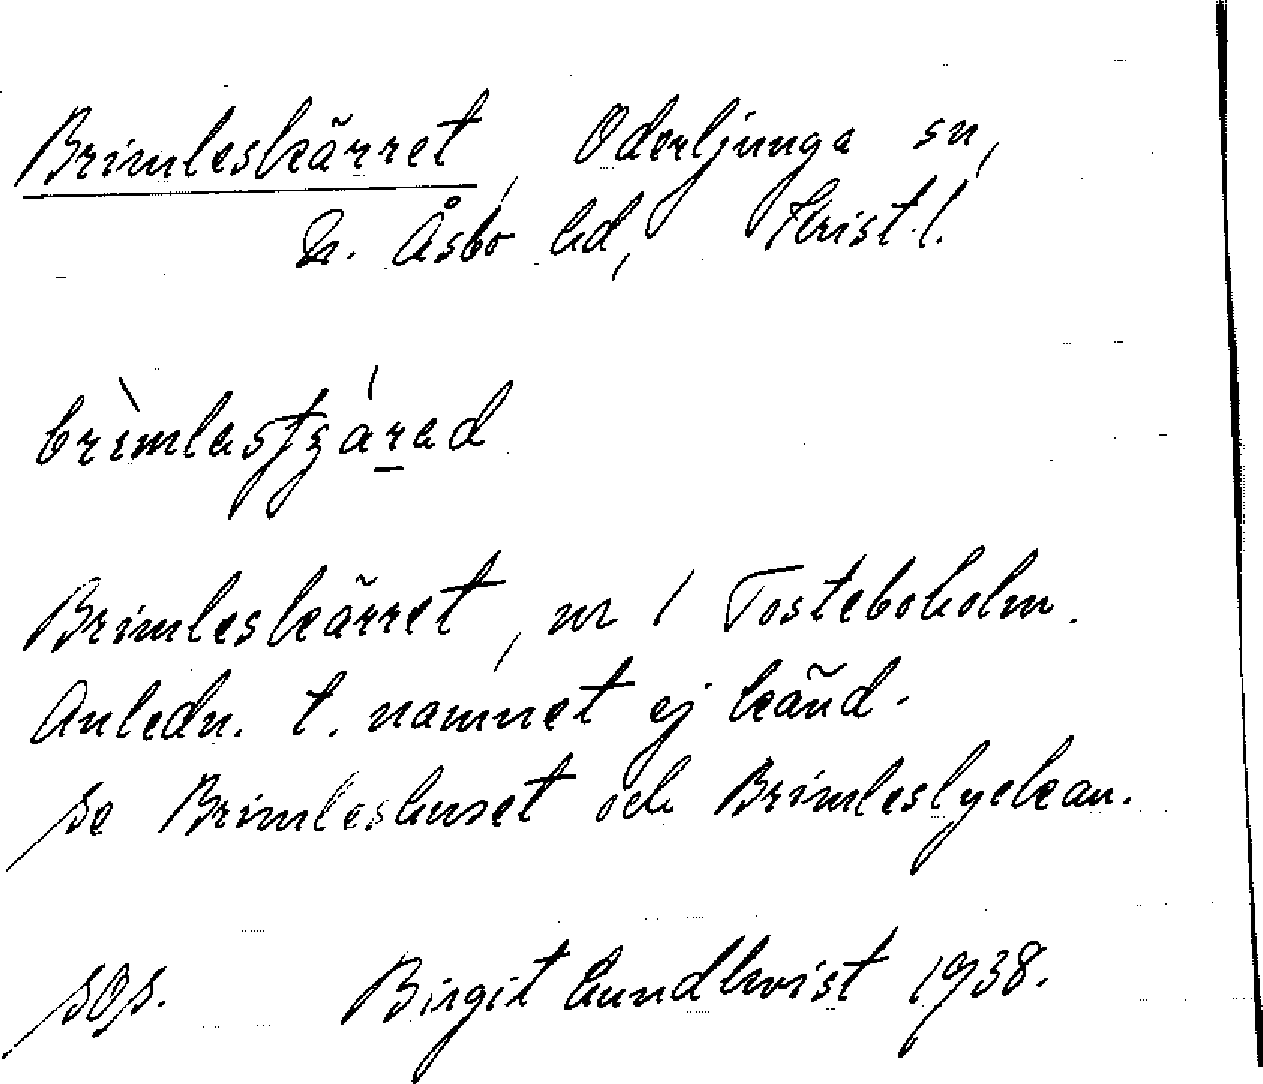 Brimleskärret, Oderljunga sn,
N. Åsbo hd, Krist. l.
Brimleskärret, nr 1 Tosteboholm.
Anledn. t. namnet ej känd.
Se Brimleshuset och Brimleslyckan.
SOS. Birgit Lundkvist 1938.